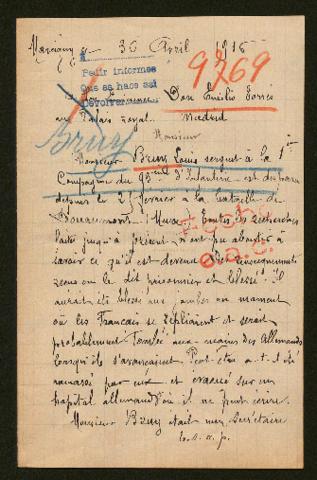 Marcigny le 30 Avril 1916
9769
Pedir informes
Que se hace así
Devolver
Don Emilio Torres
au Palais Royal. Madrid
Bruy
Monsieur
Monsieur Bruy Louis sergent à la 1ère
Compagnie du 95eme d'Infanterie est disparu
depuis le 25 février à la bataille de
Douaumont (Meuse) Toutes les recherches
faites jusqu'à présent n'ont pu aboutir à
savoir ce qu'il est devenu. Des renseignements
reçus on le dit prisonnier et blessé. il
aurait été blessé aux jambes au moment
où les Français se repliaient et serait
probablement tombé aux mains des Allemands
lorsqu'ils s'avançaient Peut être a-t-il été
ramassé par eux et évacué sur un
hôpital allemand d'où il ne peut écrire.
Monsieur Bruy était mon secrétaire